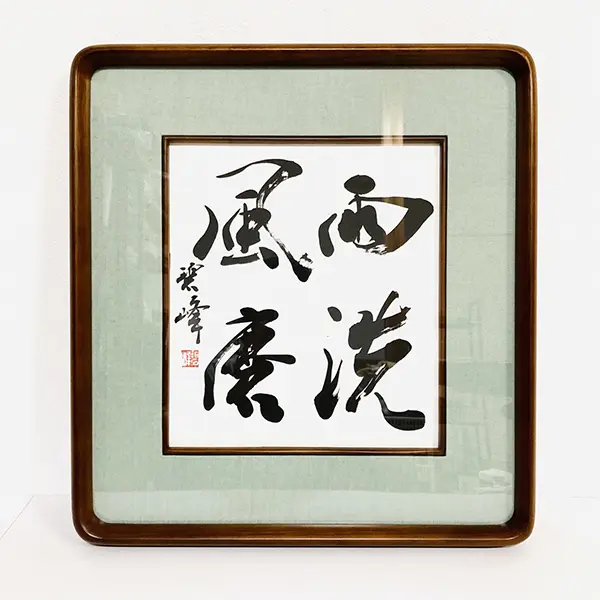 雨洗
風磨
碧峰